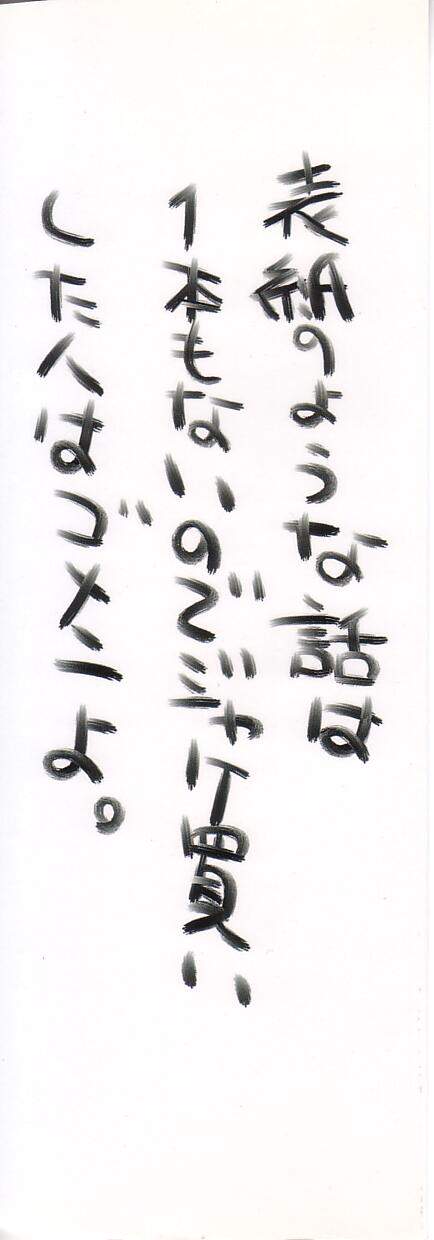 表紙のような話は
1本もないのでジャケ買い
した人はゴメンな。